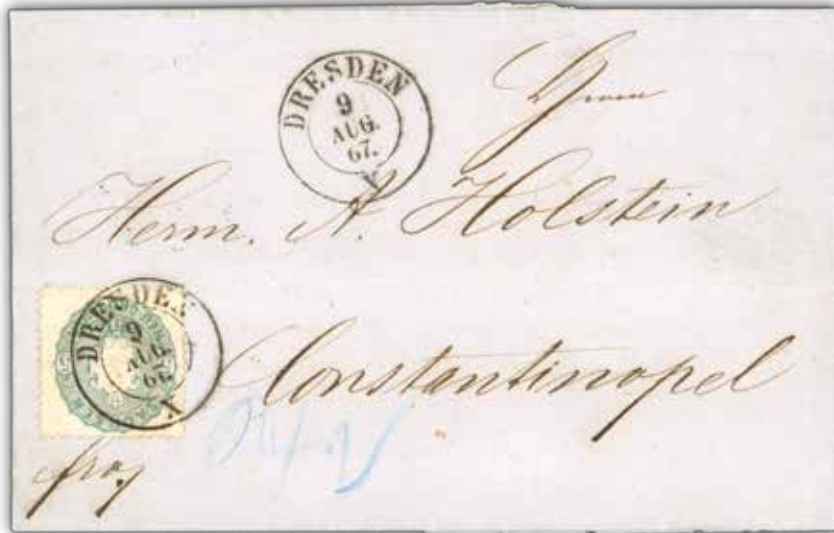 DRESDEN
9
AUG.
67.
X
Herrn
Herm. A. Holstein
DRESDEN
9
AUG.
67.
X
Constantinopel